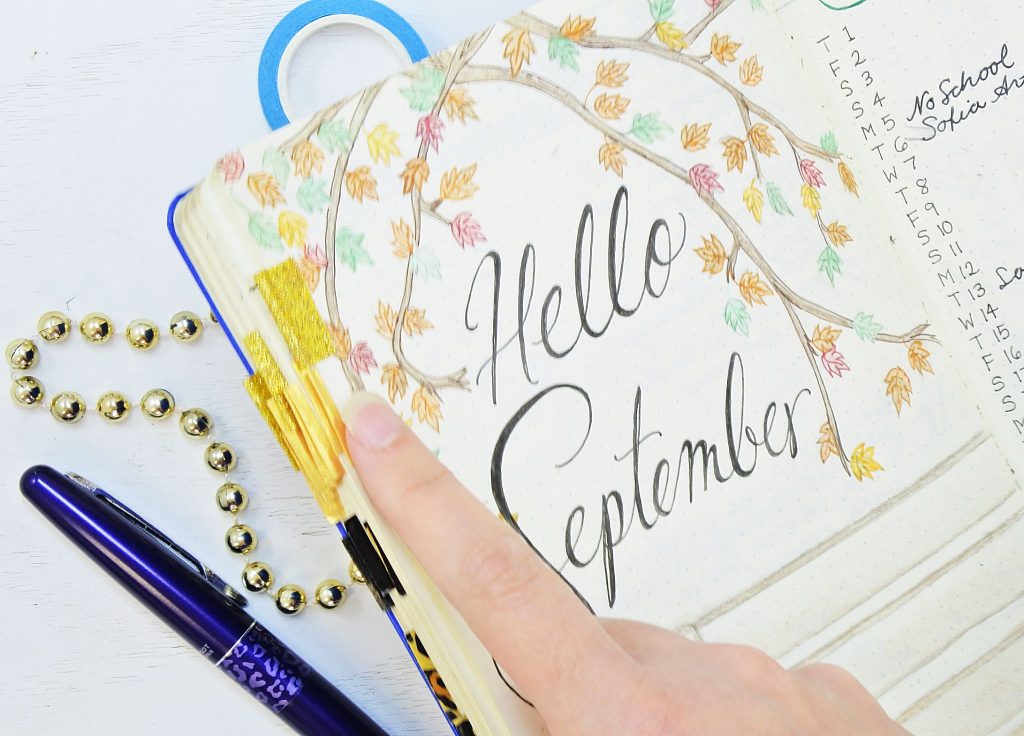 Hello
September
T 1
F 2
S 3
S 4
M 5 No School
T 6 Sofia
W 7
T 8
F 9
S 10
S 11
M 12
T 13
W 14
T 15
F 16
S 17
S
M